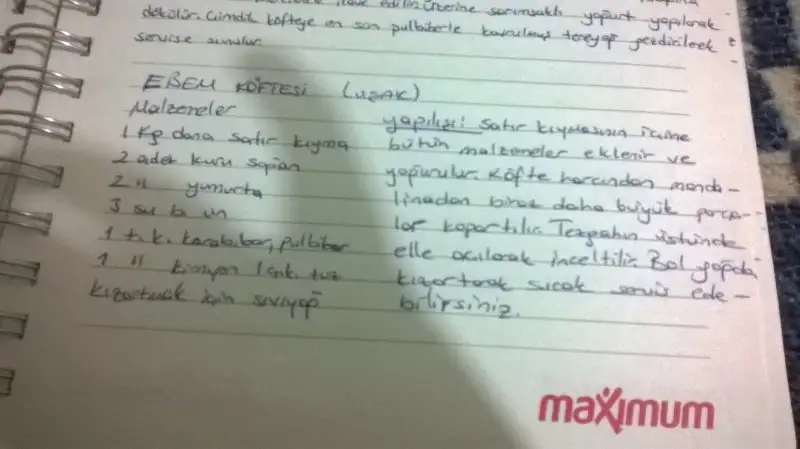 ilave edilir. Üzerine sarımsaklı yoğurt yapılarak
dökülür. Cimdik köfteye en son pulbiberle kavrulmuş tereyağ gezdirilerek
servise sunulur.
EBEM KÖFTESİ (UŞAK)
Malzemeler
1 kg dana satır kıyma
2 adet kuru soğan
2 " yumurta
3 su b un
1 t.k. karabiber, pulbiber
1 " kimyon 1 tuz
kızartmak için sıvıyağ
yapılışı: Satır kıymasının içine
bütün malzemeler eklenir ve
yoğurulur. Köfte harcından manda-
linadan biraz daha büyük parça-
lar kopartılır. Tezgahın üstünde
elle açılarak inceltilir. Bol yağda
kızartarak sıcak servis ede-
bilirsiniz.
maximum